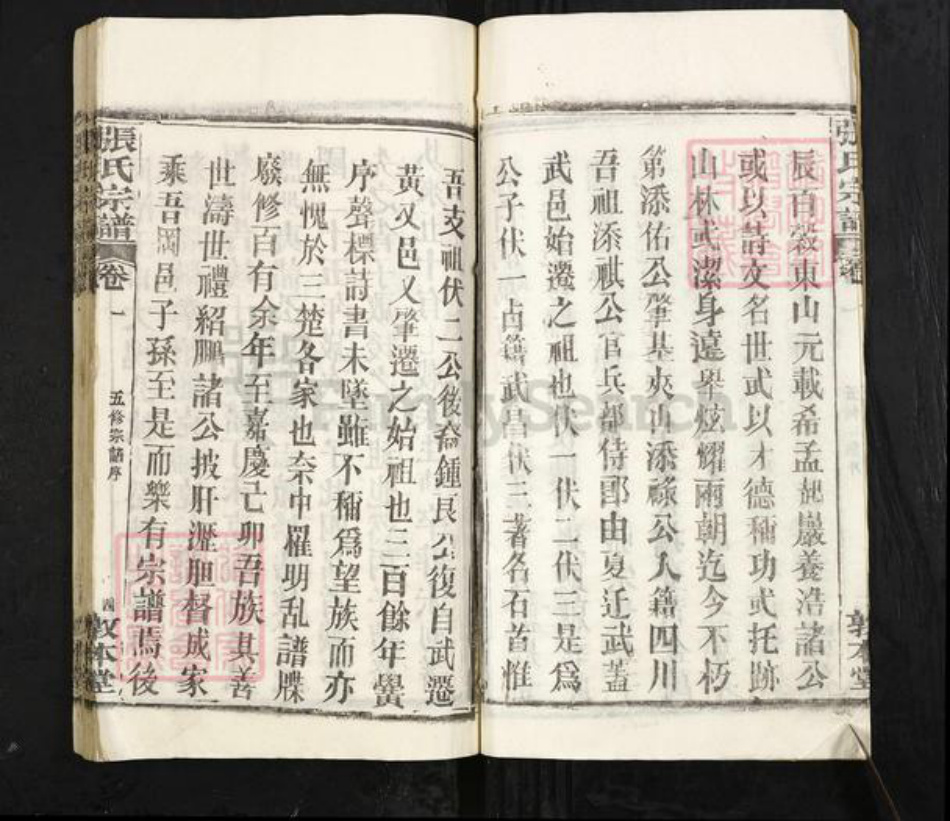 張氏宗譜
卷一
敦本堂
辰百穀東山元載希孟起巖養浩諸公
或以詩文名世或以才德稱功或托跡
山林或潔身遠舉炫耀兩朝迄今不朽
第添佑公肇基夾山添祿公人籍四川
吾祖添祺公官兵部侍郎由夏迁武蓋
武邑始遷之祖也伏一伏二伏三是爲
公子伏一占籍武昌伏三著名石首惟
吾支祖伏二公後裔鍾良公復自武遷
黃又邑又肇遷之始祖也三百餘年黌
序聲標詩書未墜雖不稱爲望族而亦
無愧於三楚各家也奈中罹明乱譜牒
廢修百有余年至嘉慶己卯吾族具善
世濤世禮紹鵬諸公披肝瀝胆督成家
乘吾岡邑子孫至是而樂有宗譜焉後
張氏宗譜
卷一
五修宗譜序
四
敦本堂
FamilySearch